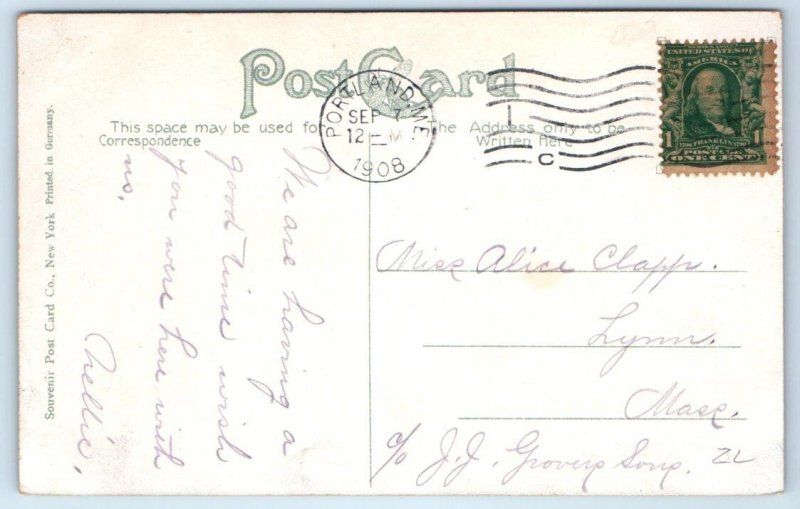 Post Card
This space may be used for
Correspondence
The Address only to be
Written Here
PORTLAND, ME.
SEP 7
12 - M
1908
1
C
UNITED STATES OF
AMERICA
FRANKLIN
POSTAGE
1 ONE CENT 1
Souvenir Post Card Co., New York Printed in Germany.
We are having a
good time wish
you were here with
us.
Nellie.
Miss Alice Clapp.
Lynn.
Mass.
c/o J. J. Grovers Sons.
ZL